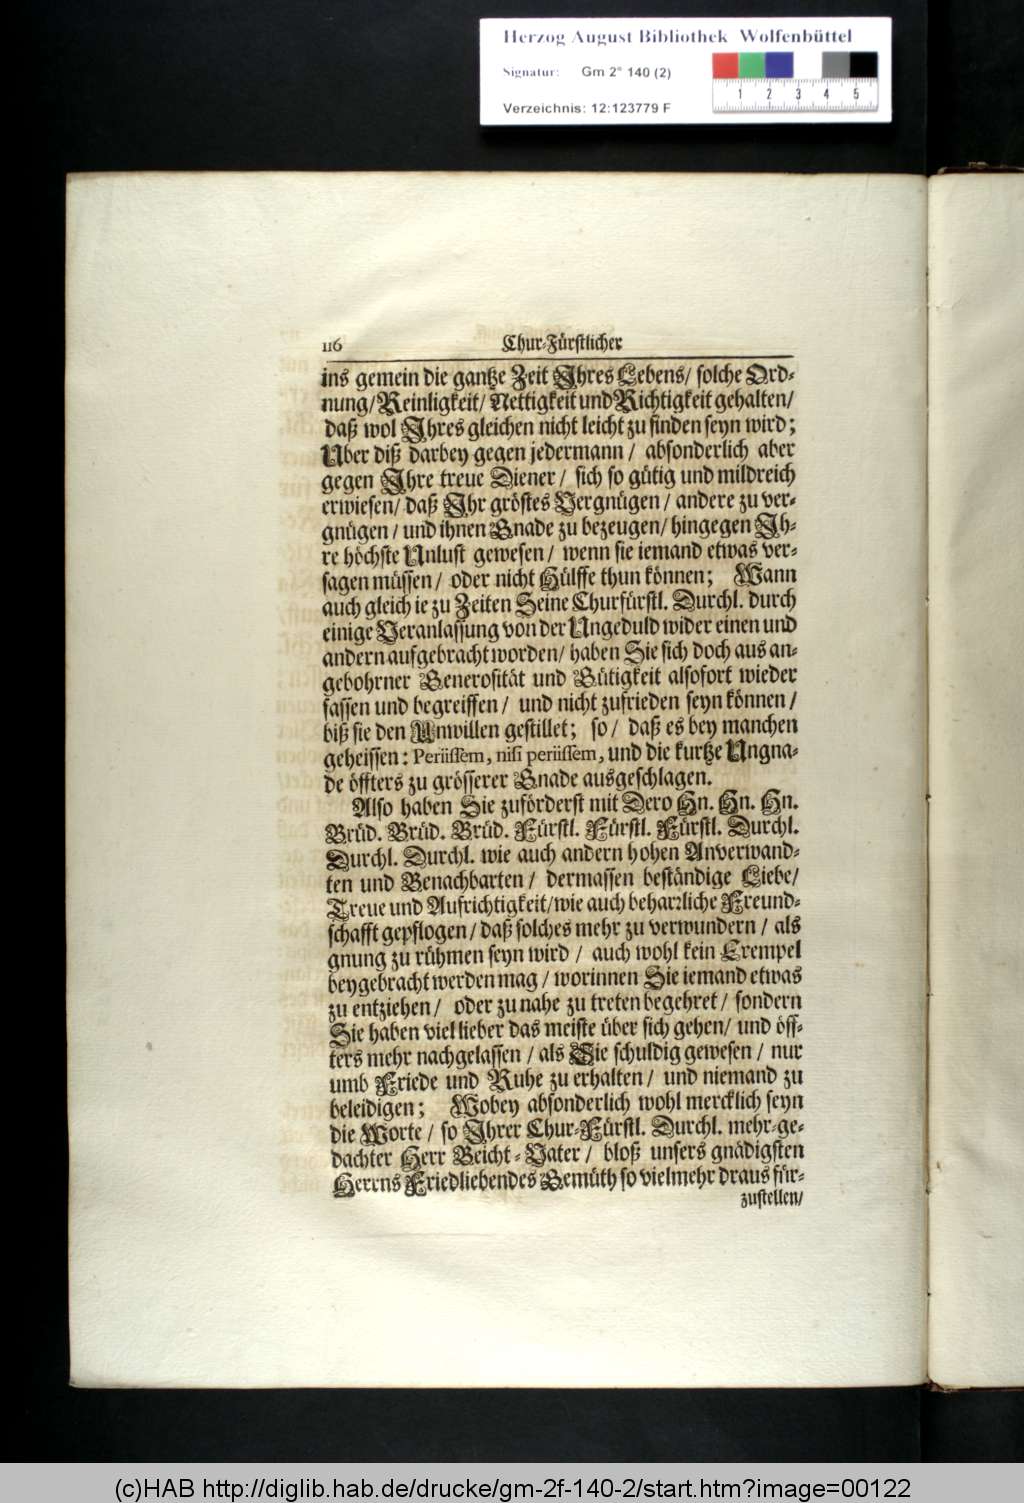 Herzog August Bibliothek Wolfenbüttel
Signatur: Gm 2° 140 (2)
1 2 3 4 5
Verzeichnis: 12:123779 F
116 Chur-Fürstlicher
ins gemein die gantze Zeit Ihres Lebens/ solche Ord-
nung/ Reinligkeit/ Nettigkeit und Richtigkeit gehalten/
daß wol Ihres gleichen nicht leicht zu finden seyn wird;
Uber diß darbey gegen jedermann / absonderlich aber
gegen Ihre treue Diener / sich so gütig und mildreich
erwiesen/ daß Ihr gröstes Vergnügen / andere zu ver-
gnügen / und ihnen Gnade zu bezeugen/ hingegen Ih-
re höchste Unlust gewesen / wenn sie iemand etwas ver-
sagen müssen / oder nicht Hülffe thun können; Wann
auch gleich ie zu Zeiten Seine Churfürstl. Durchl. durch
einige Veranlassung von der Ungeduld wider einen und
andern aufgebracht worden/ haben Sie sich doch aus an-
gebohrner Generosität und Gütigkeit alsofort wieder
fassen und begreiffen / und nicht zufrieden seyn können /
biß sie den Unwillen gestillet; so / daß es bey manchen
geheissen: Periissem, nisi periissem, und die kurtze Ungna-
de öffters zu grösserer Gnade ausgeschlagen.
Also haben Sie zuförderst mit Dero Hn. Hn. Hn.
Brüd. Brüd. Brüd. Fürstl. Fürstl. Fürstl. Durchl.
Durchl. Durchl. wie auch andern hohen Anverwand-
ten und Benachbarten / dermassen beständige Liebe/
Treue und Aufrichtigkeit/ wie auch beharrliche Freund-
schafft gepflogen / daß solches mehr zu verwundern / als
gnung zu rühmen seyn wird / auch wohl kein Exempel
beygebracht werden mag / worinnen Sie iemand etwas
zu entziehen / oder zu nahe zu treten begehret / sondern
Sie haben viel lieber das meiste über sich gehen/ und öff-
ters mehr nachgelassen / als Sie schuldig gewesen / nur
umb Friede und Ruhe zu erhalten / und niemand zu
beleidigen; Wobey absonderlich wohl mercklich seyn
die Worte / so Ihrer Chur-Fürstl. Durchl. mehr-ge-
dachter Herr Beicht-Vater / bloß unsers gnädigsten
Herrns Friedliebendes Gemüth so vielmehr draus für-
zustellen/
(c)HAB http://diglib.hab.de/drucke/gm-2f-140-2/start.htm?image=00122